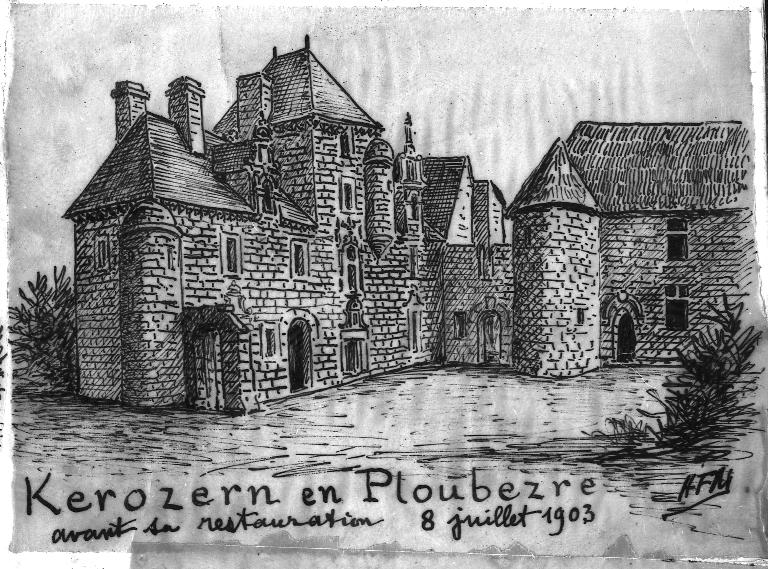 Kerozern en Ploubezre
avant sa restauration 8 juillet 1903